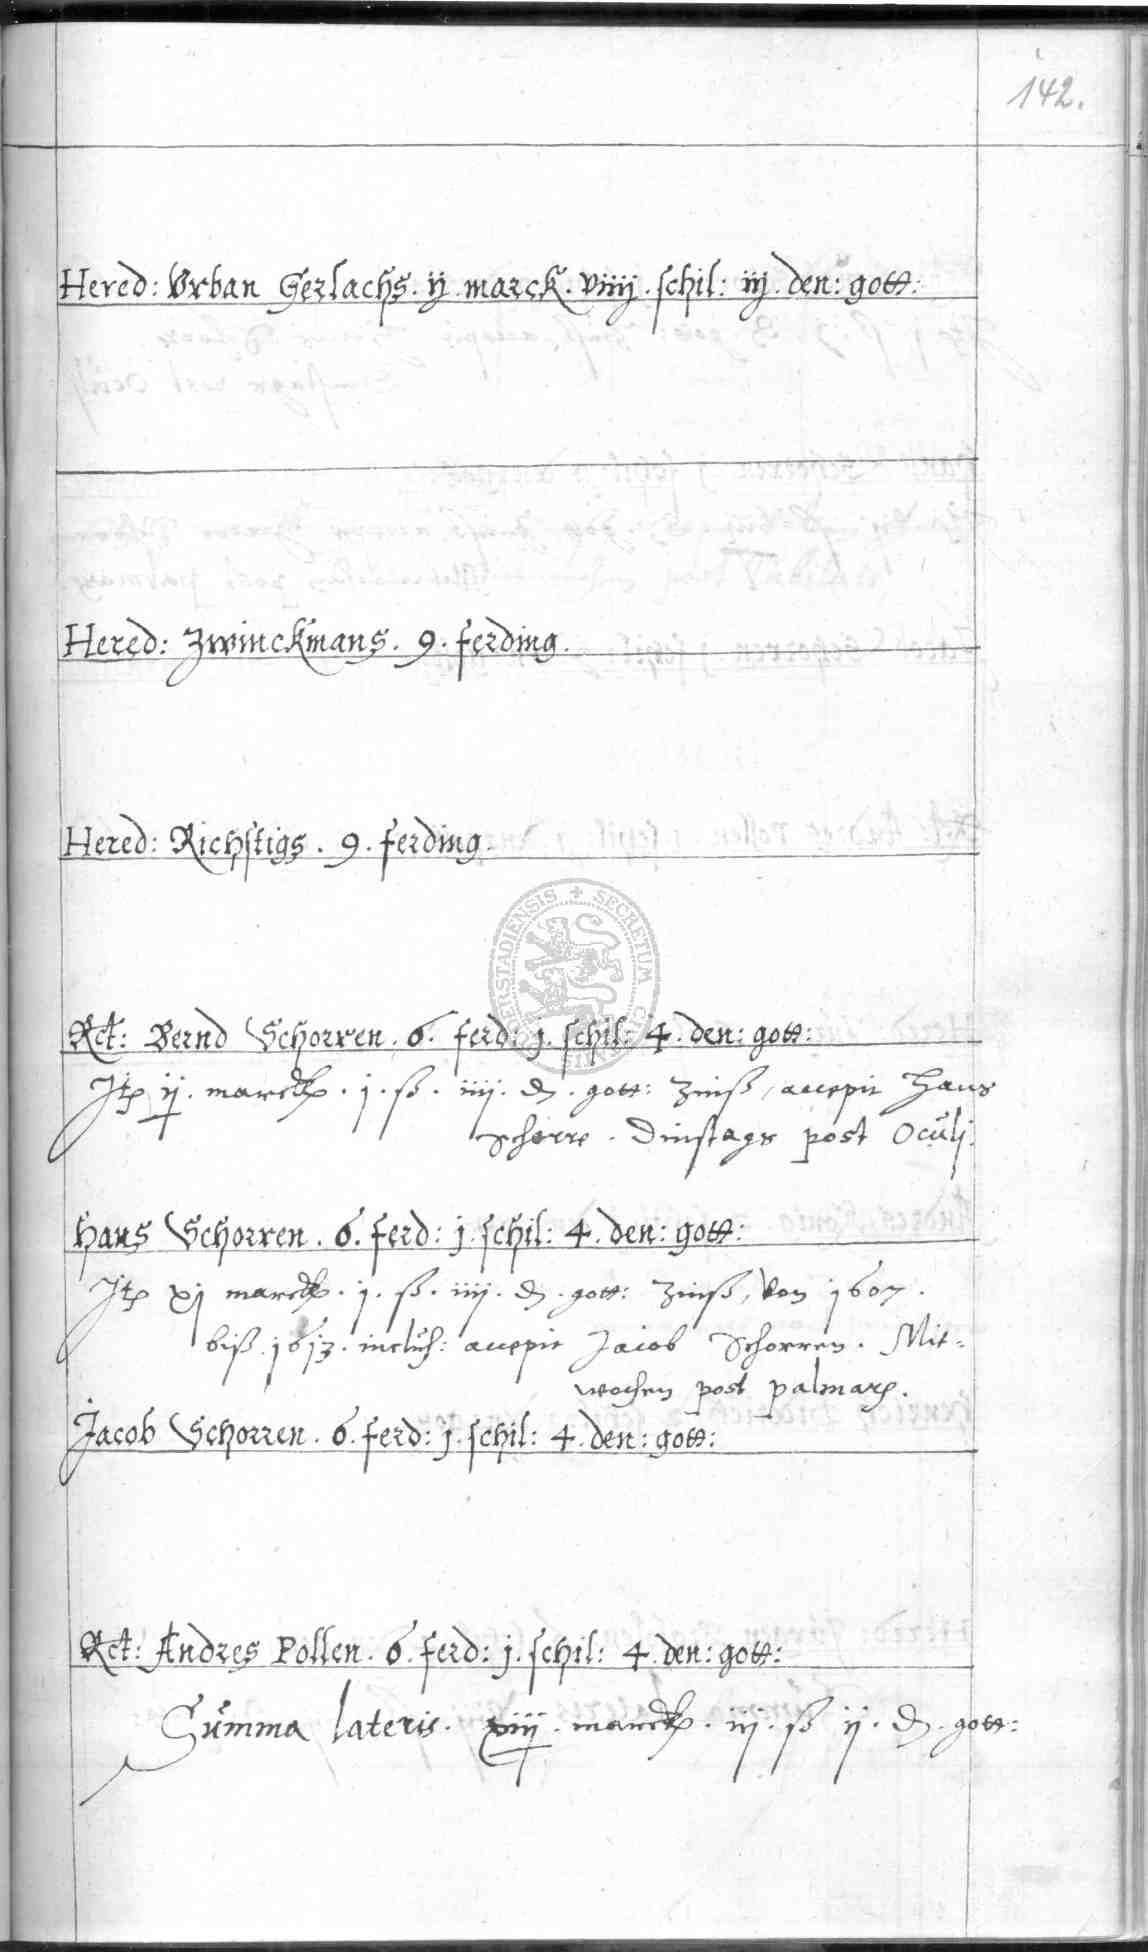 142.
Hered: Vrban Gerlachs. ij. marck. viiij. schil: iij. den: gott:
Hered: Zwinckmans. 9. ferding.
Hered: Richstigs. 9. ferding.
Rct: Bernd Schorren. 6. ferd: j. schil: 4. den: gott:
Jtp ij. marck. j. ß. iiij. d. gott: Zinß, accepit Hans
Schorre. Dinstags post Oculj.
Hans Schorren. 6. ferd: j. schil: 4. den: gott:
Jtp xj marck. j. ß. iiij. d. gott: Zinß, Von 1607.
biß 1613. inclus: accepit Jacob Schorren. Mit=
wochen post palmar.
Jacob Schorren. 6. ferd: j. schil: 4. den: gott:
Rct: Andres Pollen. 6. ferd: j. schil: 4. den: gott:
Summa lateris. xiij. marck. iij. ß ij. d. gott:
SECRETUM